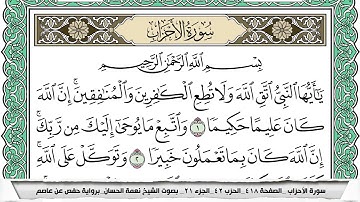 سُورَةُ الأَحْزَابِ
بِسْمِ اللَّهِ الرَّحْمَٰنِ الرَّحِيمِ
يَا أَيُّهَا النَّبِيُّ اتَّقِ اللَّهَ وَلَا تُطِعِ الْكَافِرِينَ وَالْمُنَافِقِينَ ۗ إِنَّ اللَّهَ
كَانَ عَلِيمًا حَكِيمًا ۝١ وَاتَّبِعْ مَا يُوحَىٰ إِلَيْكَ مِنْ رَبِّكَ ۚ
إِنَّ اللَّهَ كَانَ بِمَا تَعْمَلُونَ خَبِيرًا ۝٢ وَتَوَكَّلْ عَلَى اللَّهِ ۚ
سورة الأحزاب _ الصفحة ٤١٨ _ الحزب ٤٢ _ الجزء ٢١ _ بصوت الشيخ نعمة الحسان _ برواية حفص عن عاصم